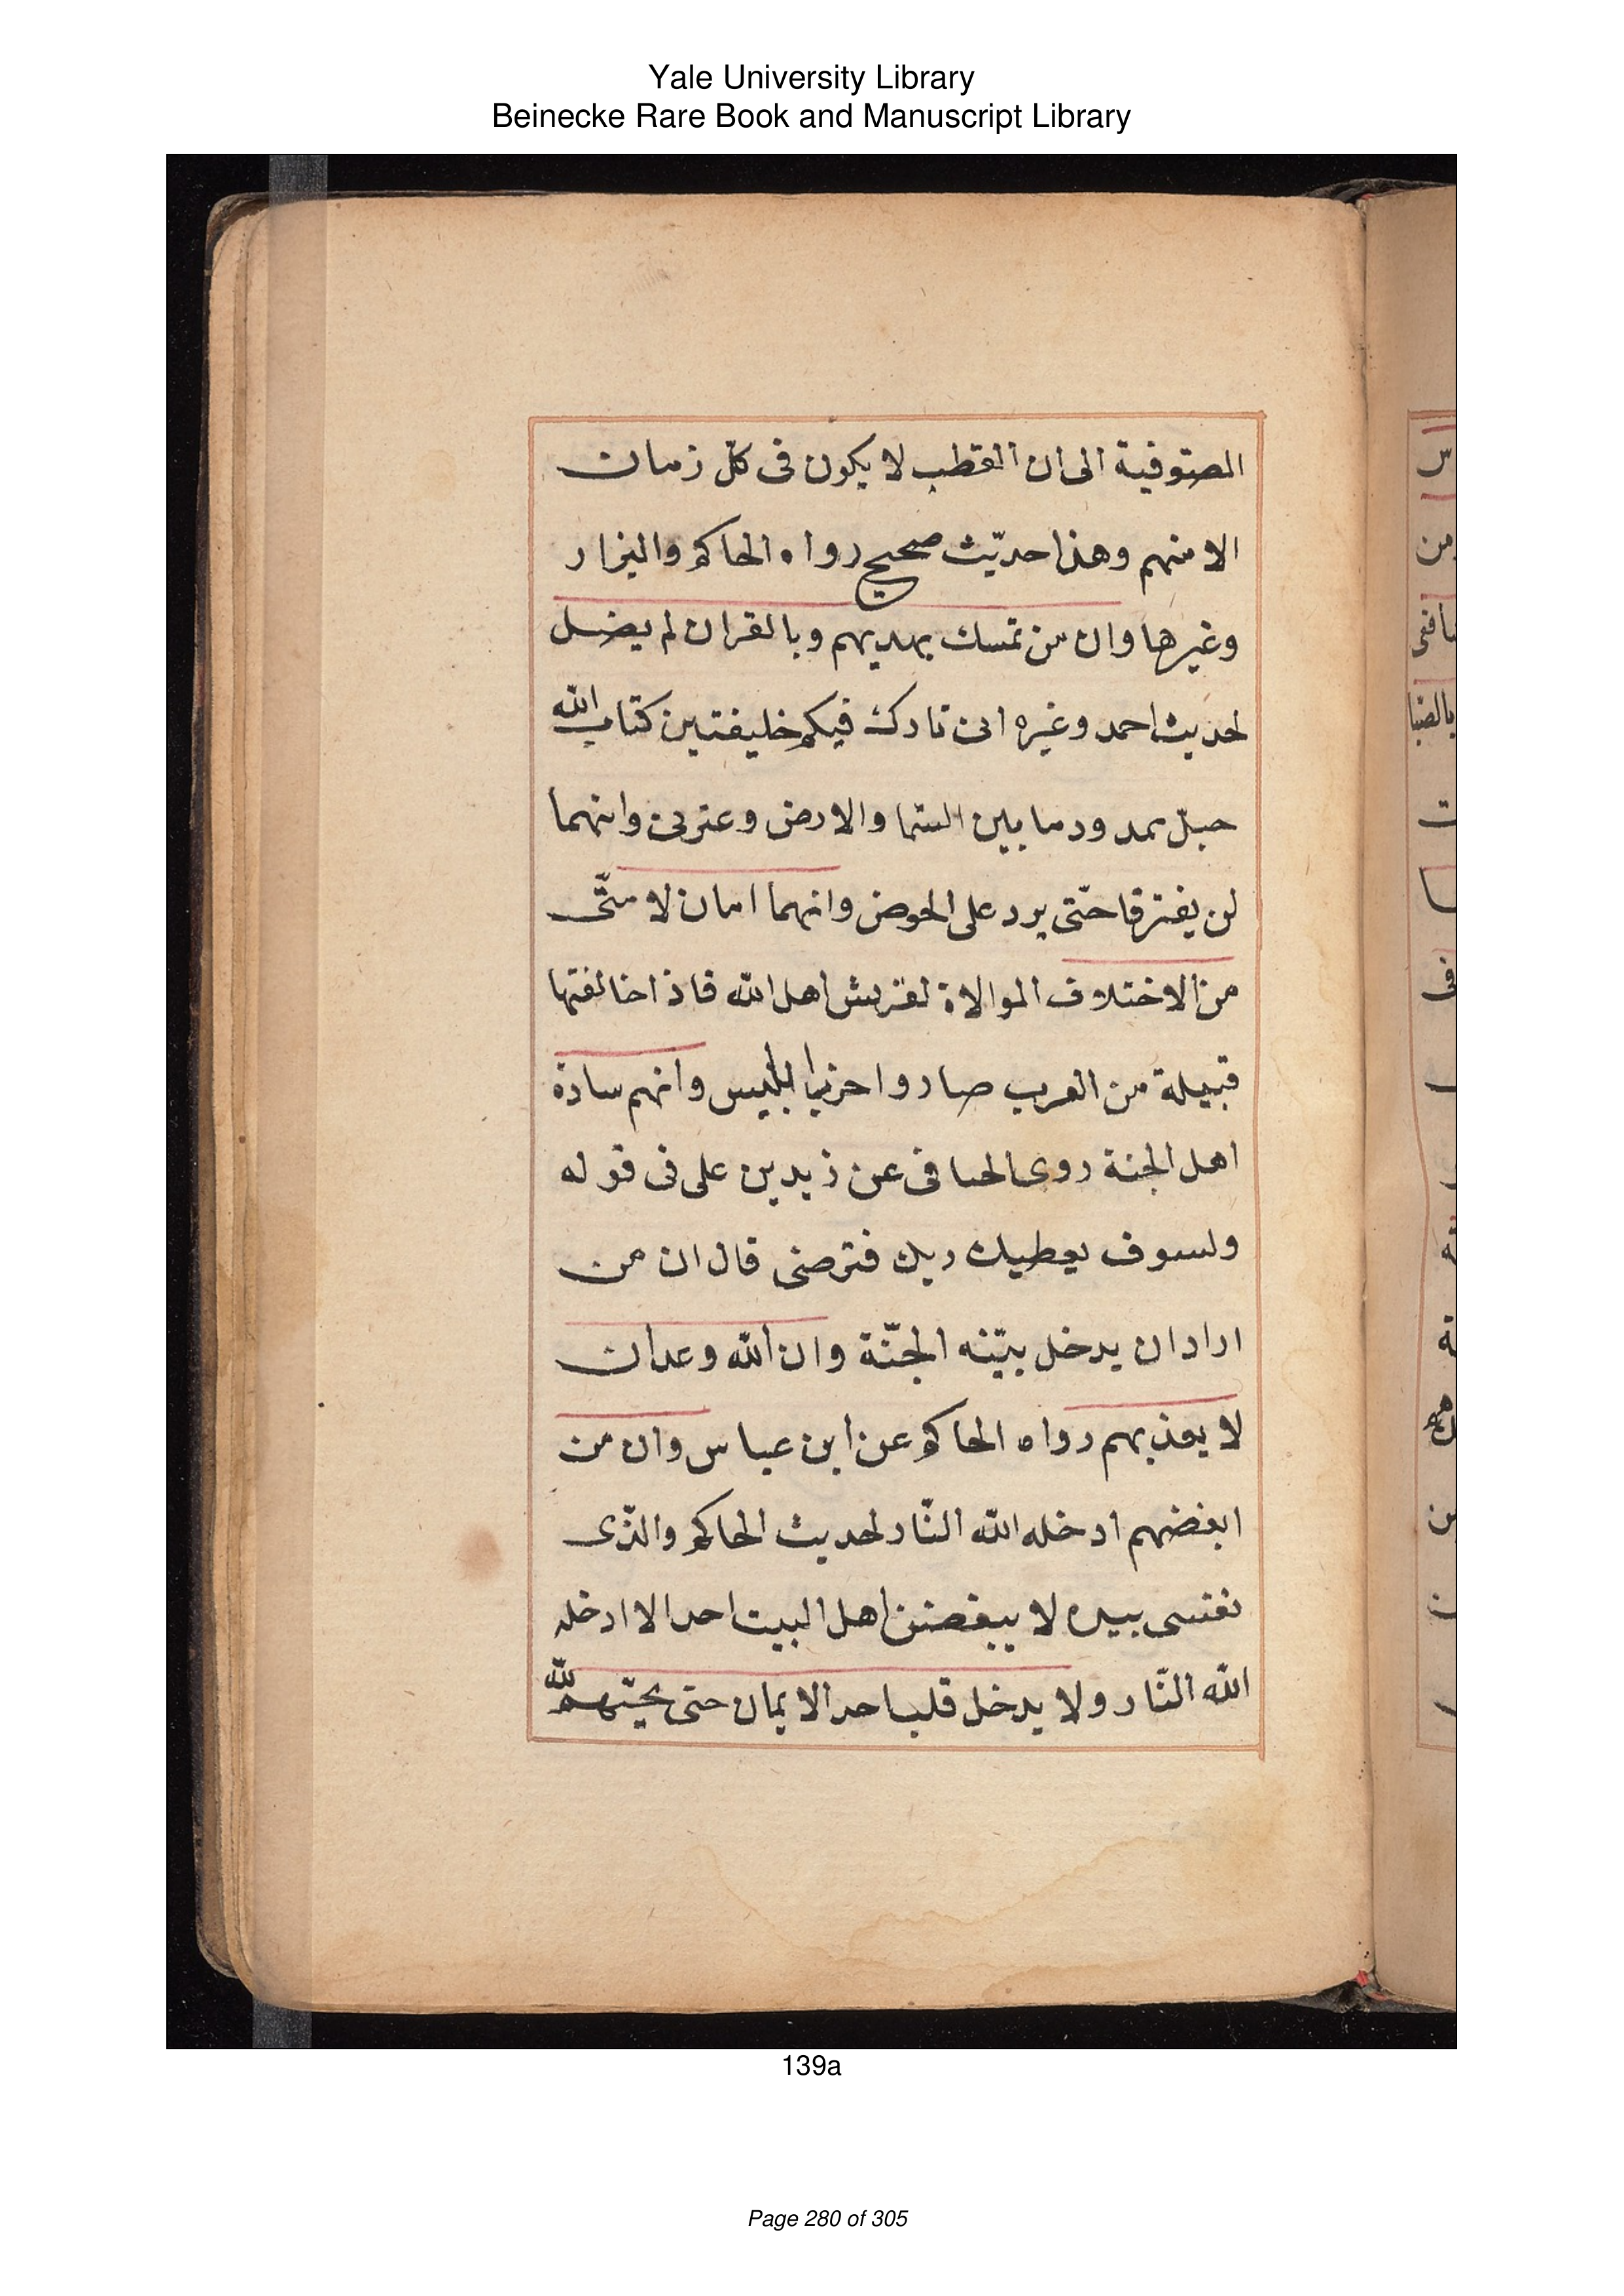 Yale University Library
Beinecke Rare Book and Manuscript Library
المصوفية الى ان القطب لا يكون فى كلّ زمان
الا منهم وهذا حديث صحيح رواه الحاكم والبزار
وغيرها وان من تمسك بهديهم وبالقران لم يضل
لحديث احمد وغيره انى تارك فيكم خليفتين كتاب الله
حبل ممدود ما بين السّما والارض وعترتى وانهما
لن يفترقا حتّى يرد على الحوض وانهما امان لامتّى
من الاختلاف الموالاة لقريش اهل الله فاذا خالفتها
قبيلة من العرب صاروا حزب ابليس وانهم سادة
اهل الجنة روى عن زيد بن على فى قوله
ولسوف يعطيك ربك فترضى قال ان من
اراد ان يدخل بيّته الجنّة وان الله وعد ان
لا يعذبهم رواه الحاكم عن ابن عباس وان من
ابغضهم ادخله الله النّار لحديث الحاكم والذّى
نفسى بيده لا يبغضن اهل البيت احد الا ادخله
الله النّار ولا يدخل قلب احد الايمان حتى يحبّهم لله
139a
Page 280 of 305